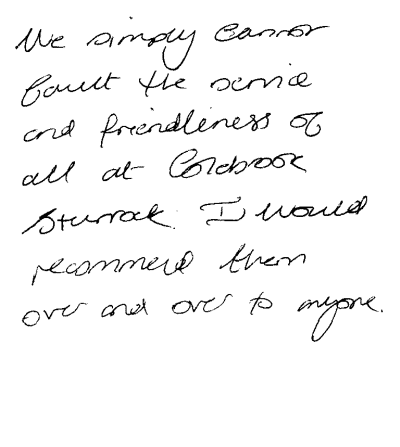 We simply cannot
fault the service
and friendliness of
all at Colebrook
Sturrock. I would
recommend them
over and over to anyone.